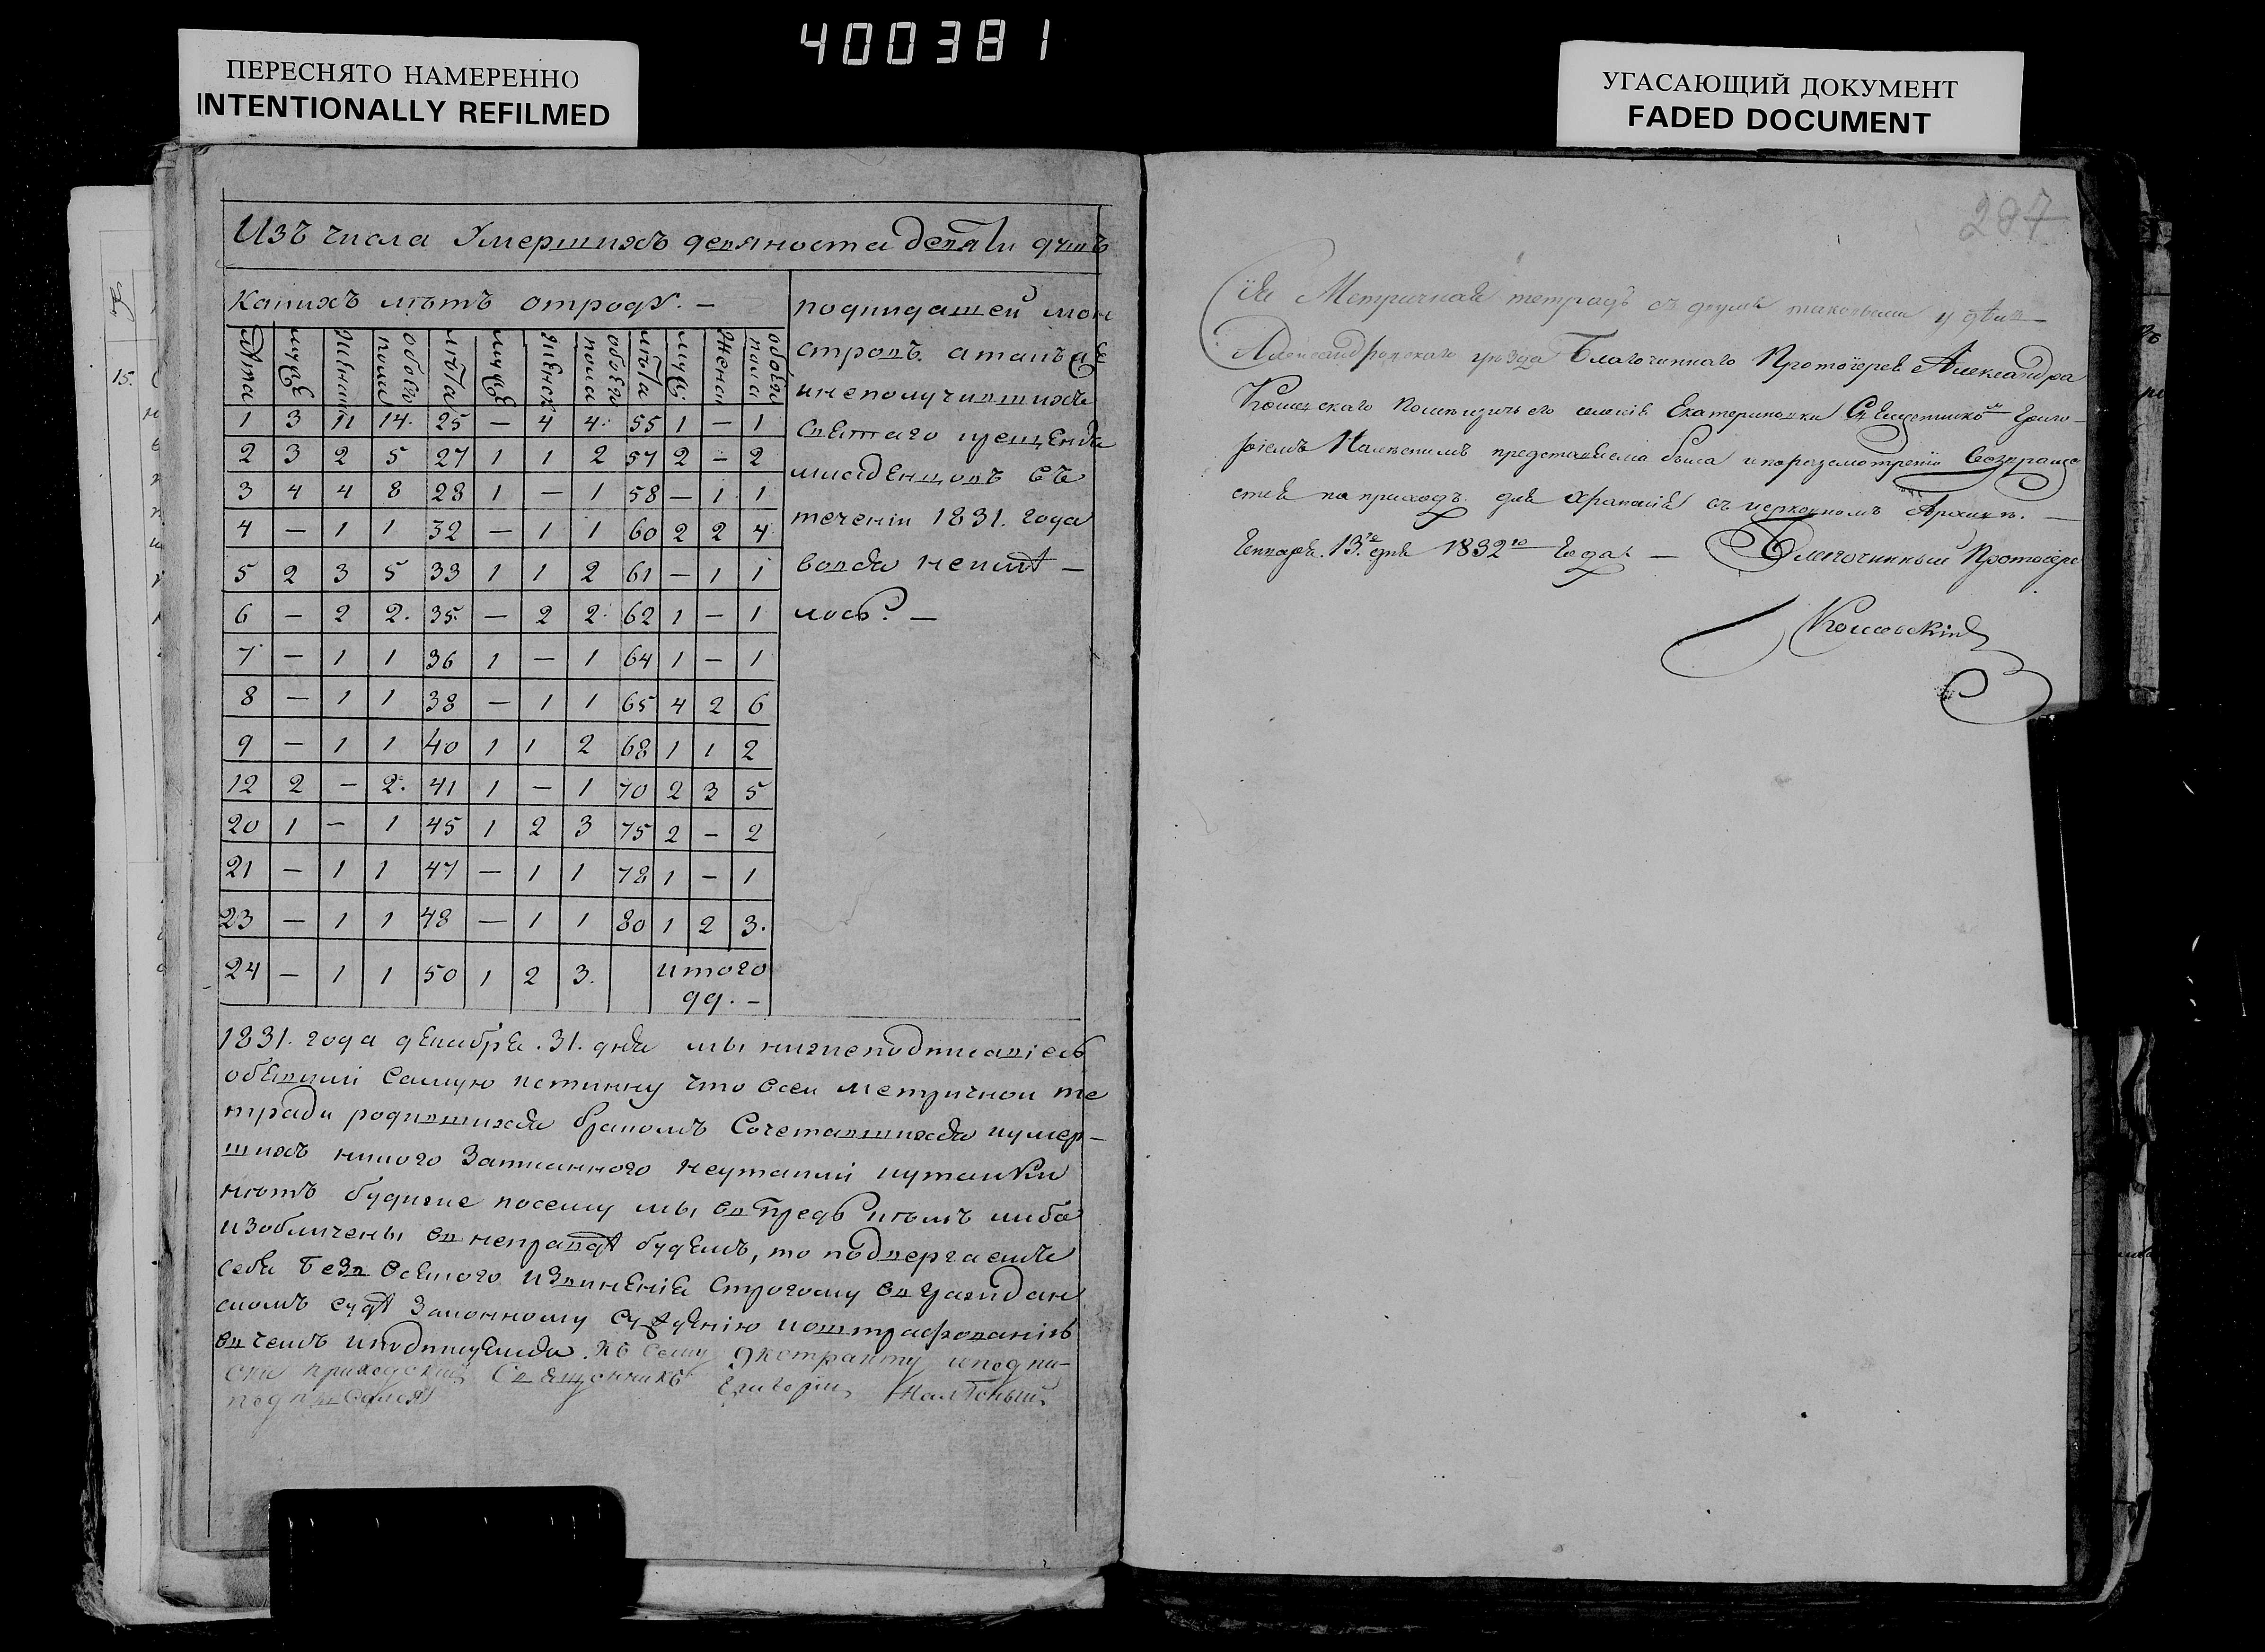 400381
ПЕРЕСНЯТО НАМЕРЕННО
INTENTIONALLY REFILMED
УГАСАЮЩИЙ ДОКУМЕНТ
FADED DOCUMENT
15.
Изъ числа Умершихъ девяноста девяти душъ
какихъ лѣтъ отроду. —
лѣта муж женска обоего пола лѣта муже женск обоего пола лѣта муж женск обоего пола
1 3 11 14. 25 — 4 4. 55 1 — 1
2 3 2 5 27 1 1 2 57 2 — 2
3 4 4 8 28 1 — 1 58 — 1 1
4 — 1 1 32 — 1 1 60 2 2 4
5 2 3 5 33 1 1 2 61 — 1 1
6 — 2 2. 35. — 2 2. 62 1 — 1
7 — 1 1 36 1 — 1 64 1 — 1
8 — 1 1 38 — 1 1 65 4 2 6
9 — 1 1 40 1 1 2 68 1 1 2
12 2 — 2. 41 1 — 1 70 2 3 5
20 1 — 1 45 1 2 3 75 2 — 2
21 — 1 1 47 — 1 1 78 1 — 1
23 — 1 1 48 — 1 1 80 1 2 3.
24 — 1 1 50 1 2 3. итого
99. —
подкидашей мон
стровъ. атакъ же
инеполучившихъ
святаго крещенія
младенцовъ въ
теченіи 1831. года
вовся неимѣ —
лось. —
1831. года декабря. 31. дня мы нижеподписавіесь
объявили самую истинну что всей метричной те
тради родившихся бракомъ Сочетавшихся иумер—
шихъ никого Затаенного неутаили иутайки
нѣтъ будиже посему мы впредь кѣмъ либо
изобличены въ неправдѣ будемъ, то подвергаемъ
себя безъ всякого извиненія строгому въ граждан
скомъ судѣ законному сужденію иоштрафованію
въ чемъ иподписуемся. Къ сему экстракту иподпи—
ски приходскій Священникъ Григорій
подписался
287
Сія Метричная тетрадь съ двумя таковыми у
Александровскаго уѣзда Благочиннаго Протоіерея Александра
его селенія Екатериновки Священикомъ Григо—
ріемъ представлена была ипоразсмотреніи возвраща
ется въ приходъ для храненія въ церковномъ Архивѣ. —
Генваря. 13. дня 1832го Года — Благочинный Протоіерей